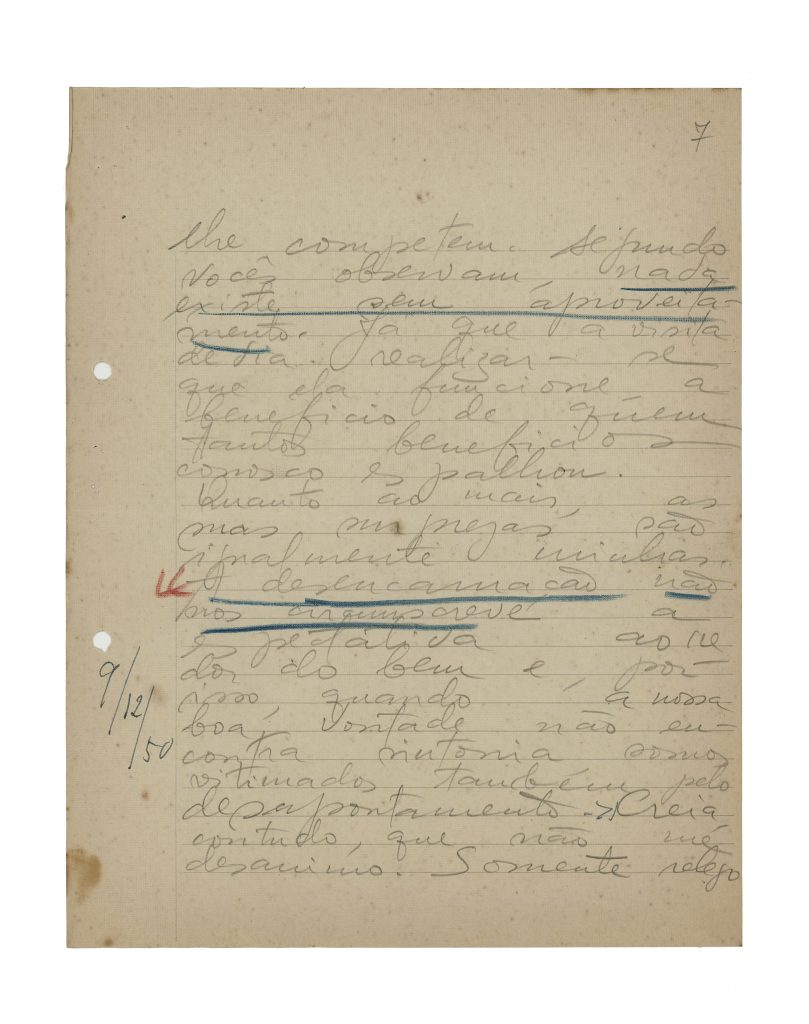 7
lhe competem. Segundo
vocês observam, nada
existe sem aproveita-
mento. Já que a visita
de tia realizar-se
que ela funcione a
beneficio de quem
tantos beneficios
conosco espalhou.
Quanto ao mais, as
mas surprezas são
igualmente minhas.
A desencarnação não
nos circunscreve a
espetativa ao re
dor do bem e, por
isso, quando a nossa
boa vontade não en-
contra sintonia somos
vitimados também pelo
desapontamento. Creia
contudo, que não me
desanimo. Somente
9/12/50